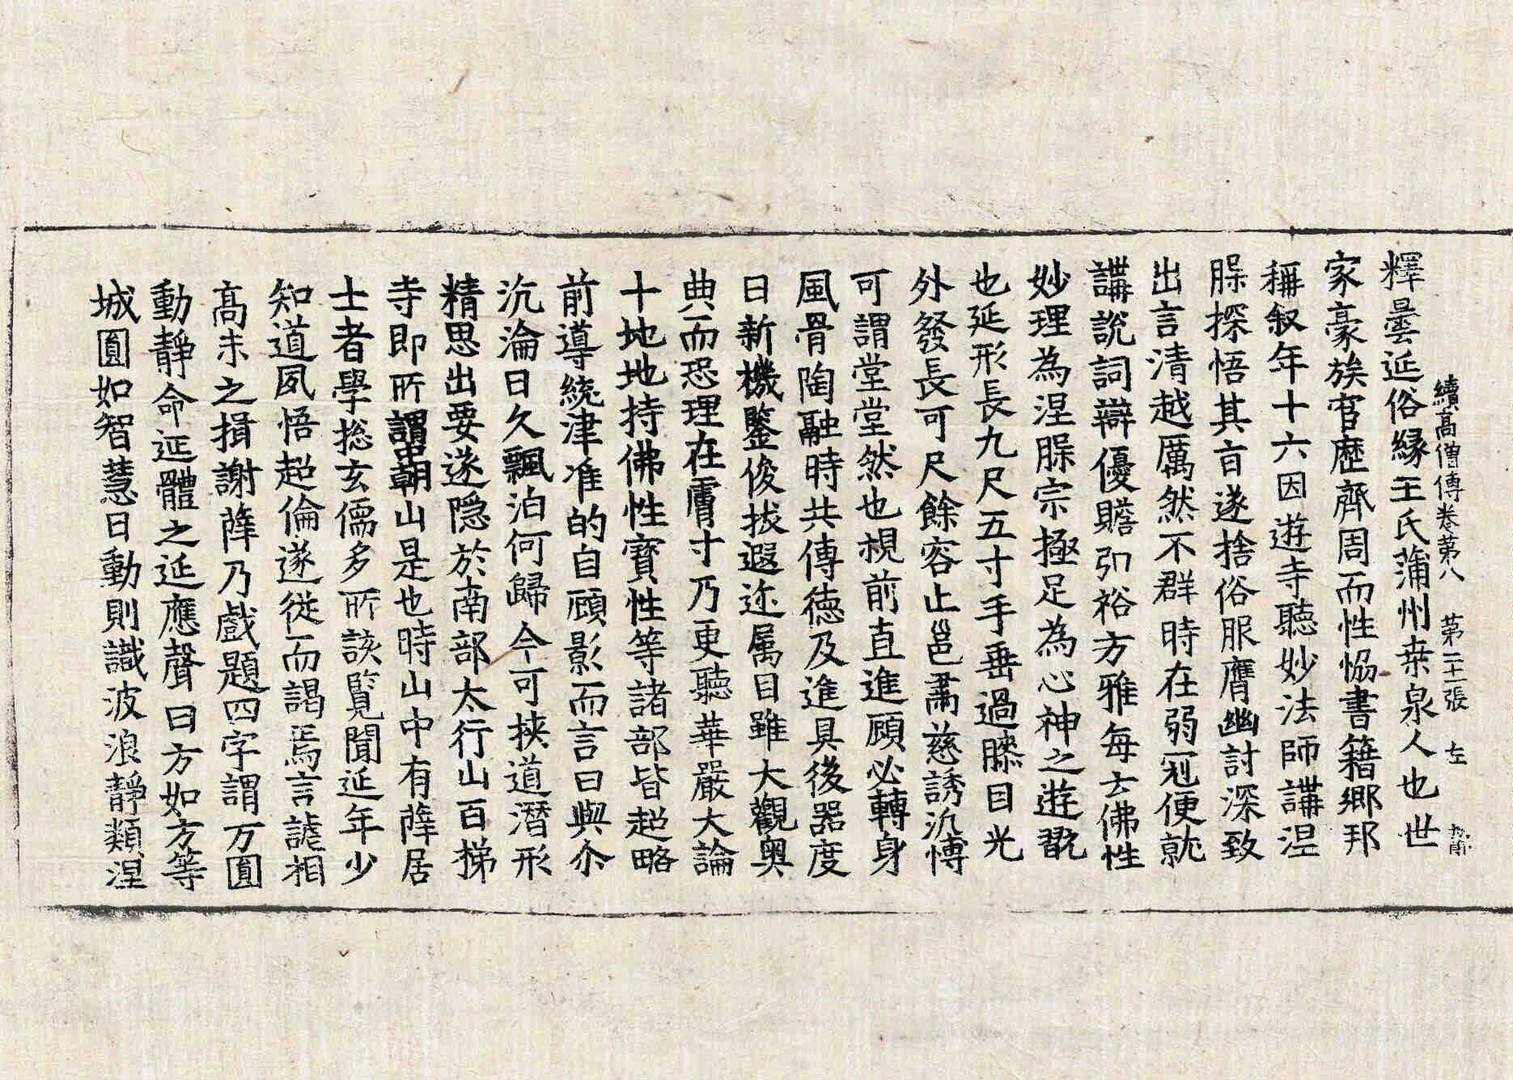 續高僧傳卷第八　第二十一張　左
釋曇延俗緣王氏蒲州桒泉人也世
家豪族官歷齊周而性恊書籍鄉邦
稱叙年十六因遊寺聽妙法師講涅
槃探悟其旨遂捨俗服膺幽討深致
出言清越厲然不群時在弱冠便就
講說詞辯優贍弘裕方雅每云佛性
妙理為涅槃宗極足為心神之遊翫
也延形長九尺五寸手垂過膝目光
外發長可尺餘容止邕肅慈誘汎愽
可謂堂堂然也視前直進顧必轉身
風骨陶融時共傳德及進具後器度
日新機鑒俊拔遐迩属目雖大觀奥
典而恐理在膚寸乃更聽華嚴大論
十地地持佛性寶性等諸部皆超略
前導統津准的自顧影而言曰與尒
沉淪日久飄泊何歸今可挟道潛形
精思出要遂隐於南部太行山百梯
寺即所謂中朝山是也時山中有薛居
士者學揔玄儒多所該覧聞延年少
知道夙悟超倫遂從而謁焉言謔相
高未之揖謝薛乃戲題四字謂方圓
動靜命延體之延應聲曰方如方等
城圓如智慧日動則識波浪靜類涅